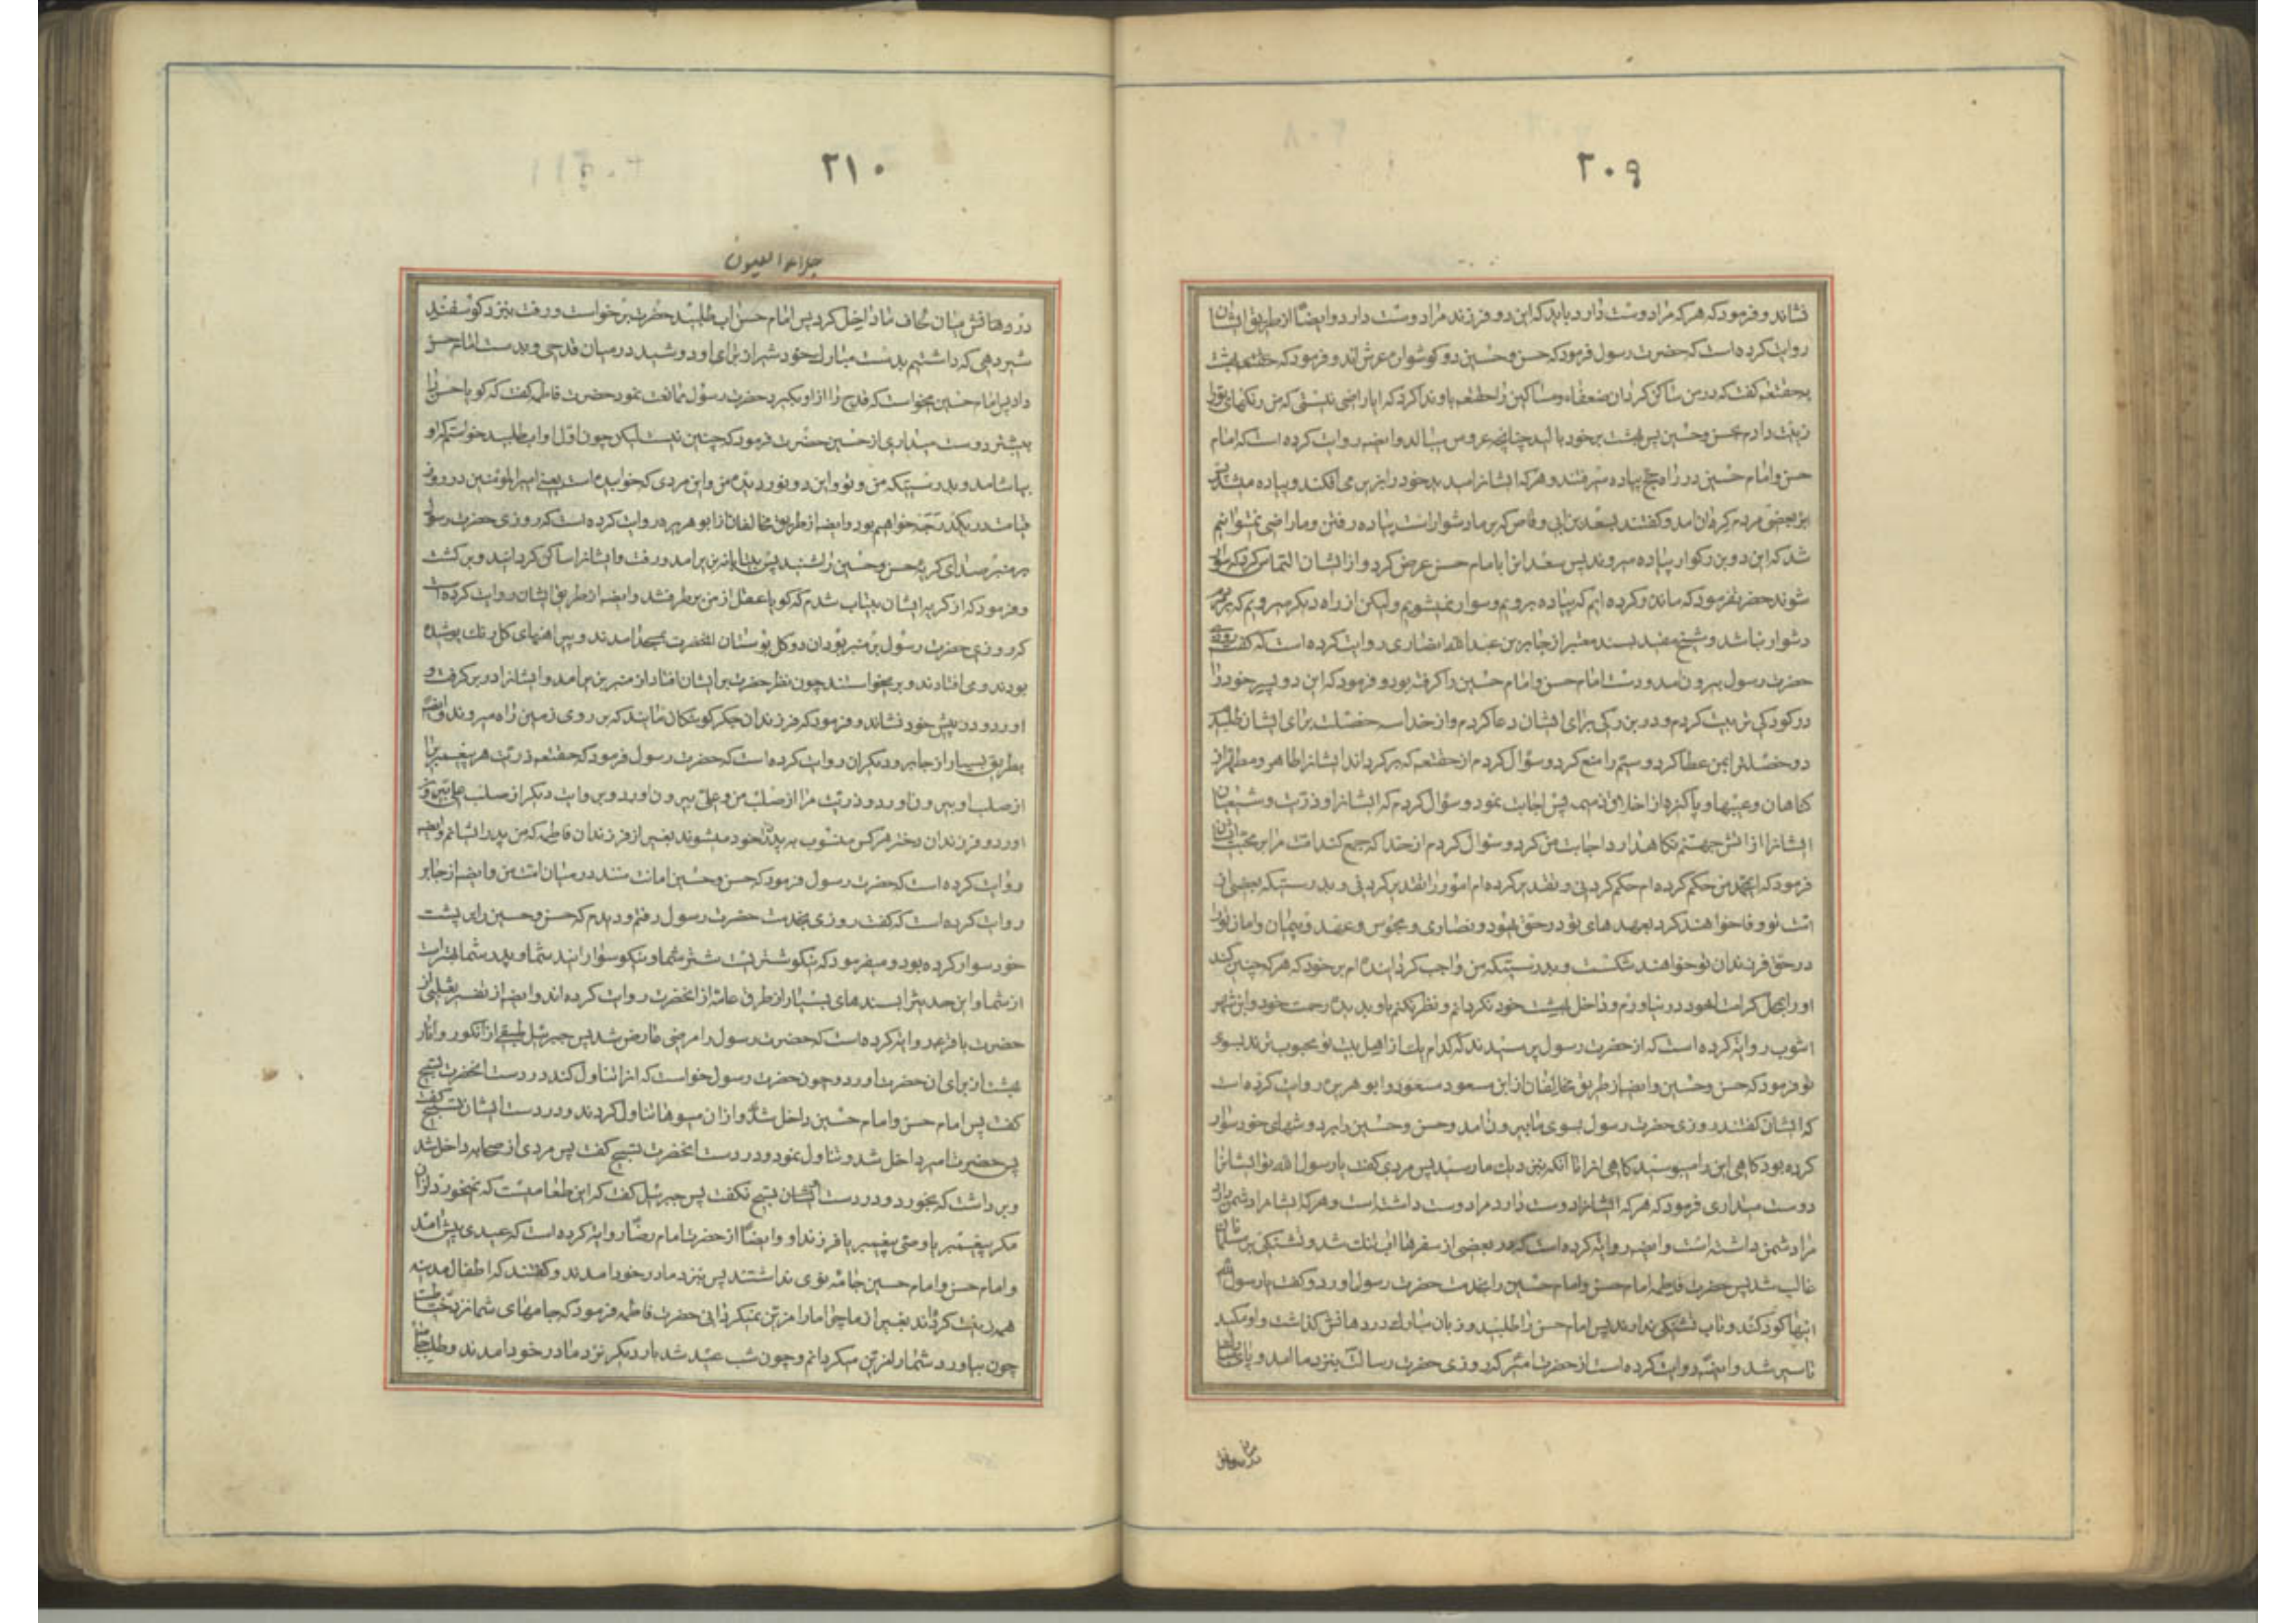 ۲۰۹
نشاند و فرمود که هر که مرا دوست دارد باید که این دو فرزند مرا دوست دارد و ایضاً از طریق ایشان
روایت کرده است که حضرت رسول فرمود که حسن و حسین دو کوشواره عرش اند و فرمود که بهشت
بحقتعم کفت که در من ساکن کردان ضعفاء و مساکین را حقتعم باو ندا کرد که ایا راضی نیستی که من رکنهای تورا
زینت دادم بحسن و حسین پس بهشت بر خود بالید چنانچه عروس میبالد و ایضه روایت کرده است که امام
حسن و امام حسین در راه حج پیاده میرفتند و هر که ایشانرا میدید خود را بزیر می افکند و پیاده میشد پس
بعضی مردم کران امد و کفتند بسعد بن ابی وقاص که بر ما دشوار است پیاده رفتن و ما راضی نمیتوانیم
شد که این دو بزرکوار پیاده میروند پس سعد انرا بامام حسن عرض کرد و از ایشان التماس کرد که سوار
شوند حضرت فرمود که ما نذر کرده ایم که پیاده برویم و سوار نمیشویم ولیکن از راه دیکر میرویم که بر مردم
دشوار نباشد و شیخ مفید بسند معتبر از جابر بن عبد الله انصاری روایت کرده است که کفت روزی
حضرت رسول بیرون امد و دست امام حسن و امام حسین را کرفته بود و فرمود که این دو پسر خود را
در کودکی تربیت کردم و در بزرکی برای ایشان دعا کردم و از خدا سه خصلت برای ایشان طلبیدم
دو خصلترا بمن عطا کرد و سیم را منع کرد و سؤال کردم از حقتعم که بر کرداند ایشانرا طاهر و مطهر از
کناهان و عیبها و پاکیزه از اخلاق ذمیمه پس اجابت نمود و سؤال کردم که ایشانرا و ذریت و شیعیان
ایشانرا از اتش جهنم نکاهدارد اجابت من کرد و سؤال کردم از خدا که جمع کند امت مرا بر محبت ایشان
فرمود که ای محمد من حکم کرده ام حکم کردنی و تقدیر کرده ام امور را تقدیر کردنی و بدرستیکه بعضی از
امت تو وفا خواهند کرد بعهدهای تو در حق یهود و نصاری و مجوس و عهد و پیمان و امان تورا
در حق فرزندان تو خواهند شکست و بدرستیکه من واجب کردانیده ام بر خود که هر که چنین کند
اورا بمحل کرامت خود در نیاورم و داخل بهشت خود نکردانم و نظر نکنم باو بدیده رحمت خود و ابن شهر
اشوب روایة کرده است که از حضرت رسول پرسیدند که کدام یک از اهل بیت تو محبوب ترند بسوی
تو فرمود که حسن و حسین و ایضاً از طریق مخالفان از ابن مسعود و ابو هریره روایت کرده است
که ایشان کفتند روزی حضرت رسول بسوی ما بیرون امد و حسن و حسین را بر دوشهای خود سوار
کرده بود کاهی این را میبوسید کاهی انرا تا انکه بنزدیک ما رسید پس مردی کفت یا رسول الله تو ایشانرا
دوست میداری فرمود که هر که ایشانرا دوست دارد مرا دوست داشته است و هر که ایشانرا دشمن دارد
مرا دشمن داشته است و ایضه روایة کرده است که در بعضی از سفرها اب تنک شد و تشنکی بر مسلمانان
غالب شد پس حضرت فاطمه امام حسن و امام حسین را بخدمت حضرت رسول اورد و کفت یا رسول الله
اینها کودکند و تاب تشنکی ندارند پس امام حسن را طلبید و زبان مبارک در دهانش کذاشت و او مکید
تا سیر شد و ایضه روایت کرده است از حضرت امیر که روزی حضرت رسالت بنزد ما امد و پای
۲۱۰
جلاء العیون
در رختخواب میان لحاف ما داخل کرد پس امام حسن اب طلبید حضرت برخواست و رفت بنزد کوسفند
شیر دهی که داشتیم بدست مبارک خود شیر از برای او دوشید در میان قدحی و بدست امام حسن
داد پس امام حسین میخواست که قدح را از او بکیرد حضرت رسول ممانعت نمود حضرت فاطمه کفت که کویا حسن را
بیشتر دوست میداری از حسین حضرت فرمود که چنین نیست لیکن چون اول او اب طلبید خواستم که او
بیاشامد و بدرستیکه من و تو و این دو نور دیده من و این مردی که خوابیده است یعنی امیر المؤمنین در روز
قیامت در یکدرجه خواهیم بود و ایضه از طریق مخالفان از ابو هریره روایت کرده است که روزی حضرت رسول
بر منبر صدای کریه حسن و حسین را شنید پس بیتابانه بزیر امد و رفت و ایشانرا ساکن کردانید و بر کشت
و فرمود که از کریه ایشان بیتاب شدم که کویا عقل از من بر طرف شد و ایضه از طریق ایشان روایت کرده است
که روزی حضرت رسول بر منبر بود ان دو کل بوستان انحضرت بمسجد امدند و پیراهنهای کل رنک پوشیده
بودند و می افتادند و بر میخواستند چون نظر حضرت بر ایشان افتاد از منبر بزیر امد و ایشانرا در بر کرفت و
اورد و در پیش خود نشاند و فرمود که فرزندان جکر کوشکان مایند که بر روی زمین راه میروند و ایضه
بطریق بسیار از جابر و دیکران روایت کرده است که حضرت رسول فرمود که حقتعم ذریت هر پیغمبر را
از صلب او بیرون اورد و ذریت مرا از صلب من و علی بیرون اورد و بروایت دیکر از صلب علی بیرون
اورد و فرزندان دختر هر کس منسوب به پدران خود میشوند بغیر از فرزندان فاطمه که من پدر ایشانم و ایضه
روایت کرده است که حضرت رسول فرمود که حسن و حسین امانت منند در میان امت من و ایضه از جابر
روایت کرده است که کفت روزی بخدمت حضرت رسول رفتم و دیدم که حسن و حسین را بر پشت
خود سوار کرده بود و میفرمود که نیکو شتریست شتر شما و نیکو سوارانید شما و پدر شما بهتر است
از شما و این حدیثرا بسندهای بسیار از طرق عامه از انحضرت روایت کرده اند و ایضه از تفسیر ثعلبی از
حضرت باقر روایة کرده است که حضرت رسول را مرضی عارض شد پس جبرئیل طبقی از انکور و انار
بهشت از برای ان حضرت اورد و چون حضرت رسول خواست که انرا تناول کند در دست انحضرت تسبیح
کفت پس امام حسن و امام حسین داخل شدند و از ان میوها تناول کردند و در دست ایشان تسبیح کفت
پس حضرت امیر داخل شد و تناول نمود و در دست انحضرت تسبیح کفت پس مردی از صحابه داخل شد
و برداشت که بخورد و در دست ایشان تسبیح نکفت پس جبرئیل کفت که این طعامیست که نمیخورد از ان
مکر پیغمبر یا وصی پیغمبر یا فرزند او و ایضاً از حضرت امام رضا روایة کرده است که عیدی پیش امد
و امام حسن و امام حسین جامه نوی نداشتند پس بنزد مادر خود امدند و کفتند که اطفال مدینه
همه زینت کرده اند بغیر از ما چرا ما را مزین نمیکردانی حضرت فاطمه فرمود که جامهای شما نزد خیاط است
چون بیاورد شما را مزین میکردانم و چون شب عید شد بار دیکر نزد مادر خود امدند و طلب جامها